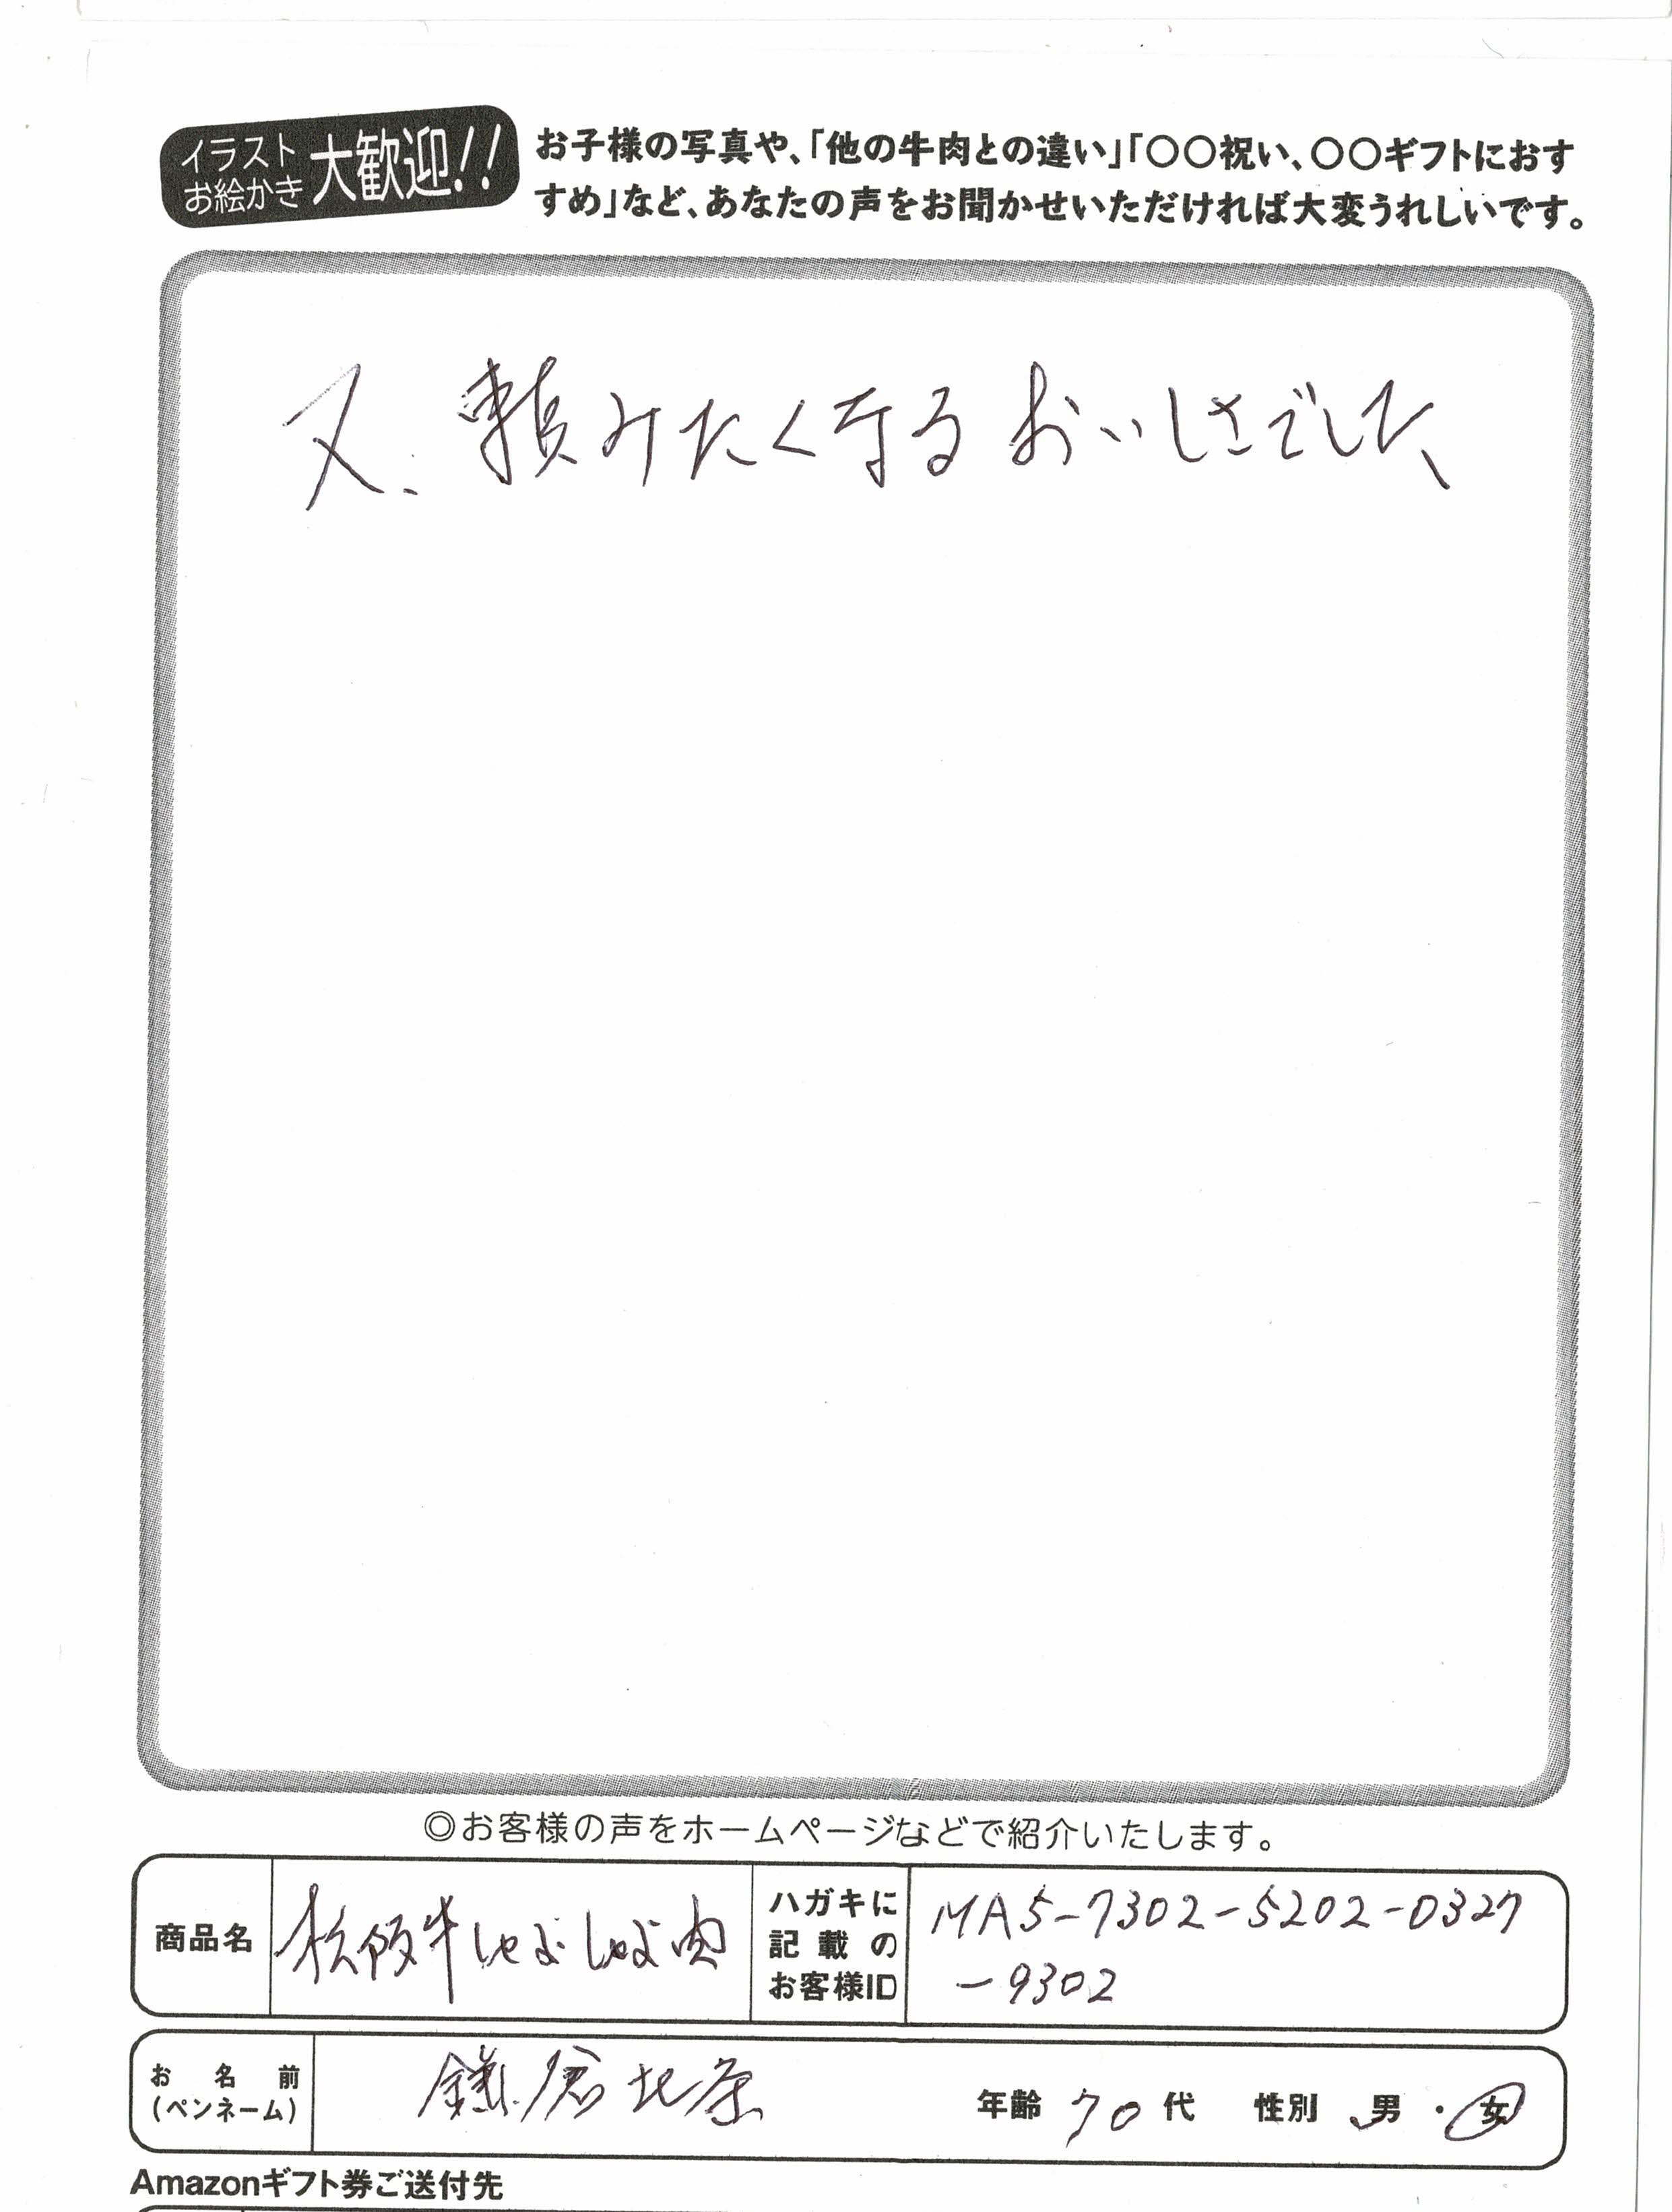 イラスト
お絵かき
大歓迎!!
お子様の写真や、「他の牛肉との違い」「〇〇祝い、〇〇ギフトにおす
すめ」など、あなたの声をお聞かせいただければ大変うれしいです。
又、頼みたくなるおいしさでした、
◎お客様の声をホームページなどで紹介いたします。
商品名
松阪牛しゃぶしゃぶ肉
ハガキに
記載の
お客様ID
MA5-7302-5202-0327
-9302
お名前
(ペンネーム)
鎌倉
年齢 70代 性別 男・女
Amazonギフト券ご送付先